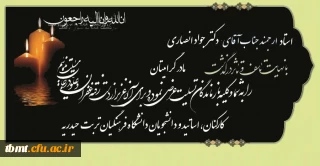 انا لله و انا الیه راجعون
استاد ارجمند جناب آقای دکتر جواد انصاری
بانهایت تاسف و تاثر درگذشت مادر گرامیتان
را به شما و کلیه بازماندگان تسلیت عرض نموده و برای آن عزیز از دست رفته غفران الهی
کارکنان، اساتید و دانشجویان دانشگاه فرهنگیان تربت حیدریه
tbmt.cfu.ac.ir